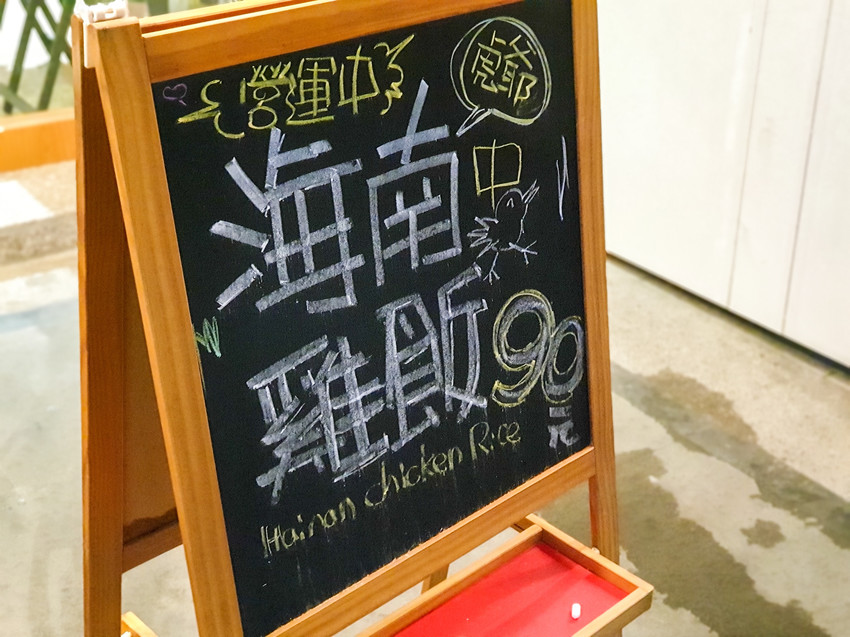 營運中
虎爺
海南
中
雞飯 90元
Hainan chicken Rice